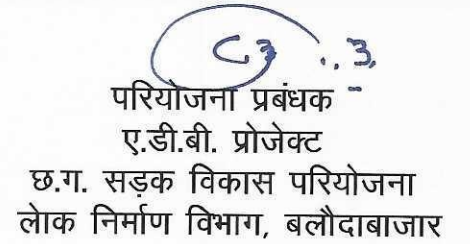 परियोजना प्रबंधक
ए.डी.बी. प्रोजेक्ट
छ.ग. सड़क विकास परियोजना
लेाक निर्माण विभाग, बलौदाबाजार